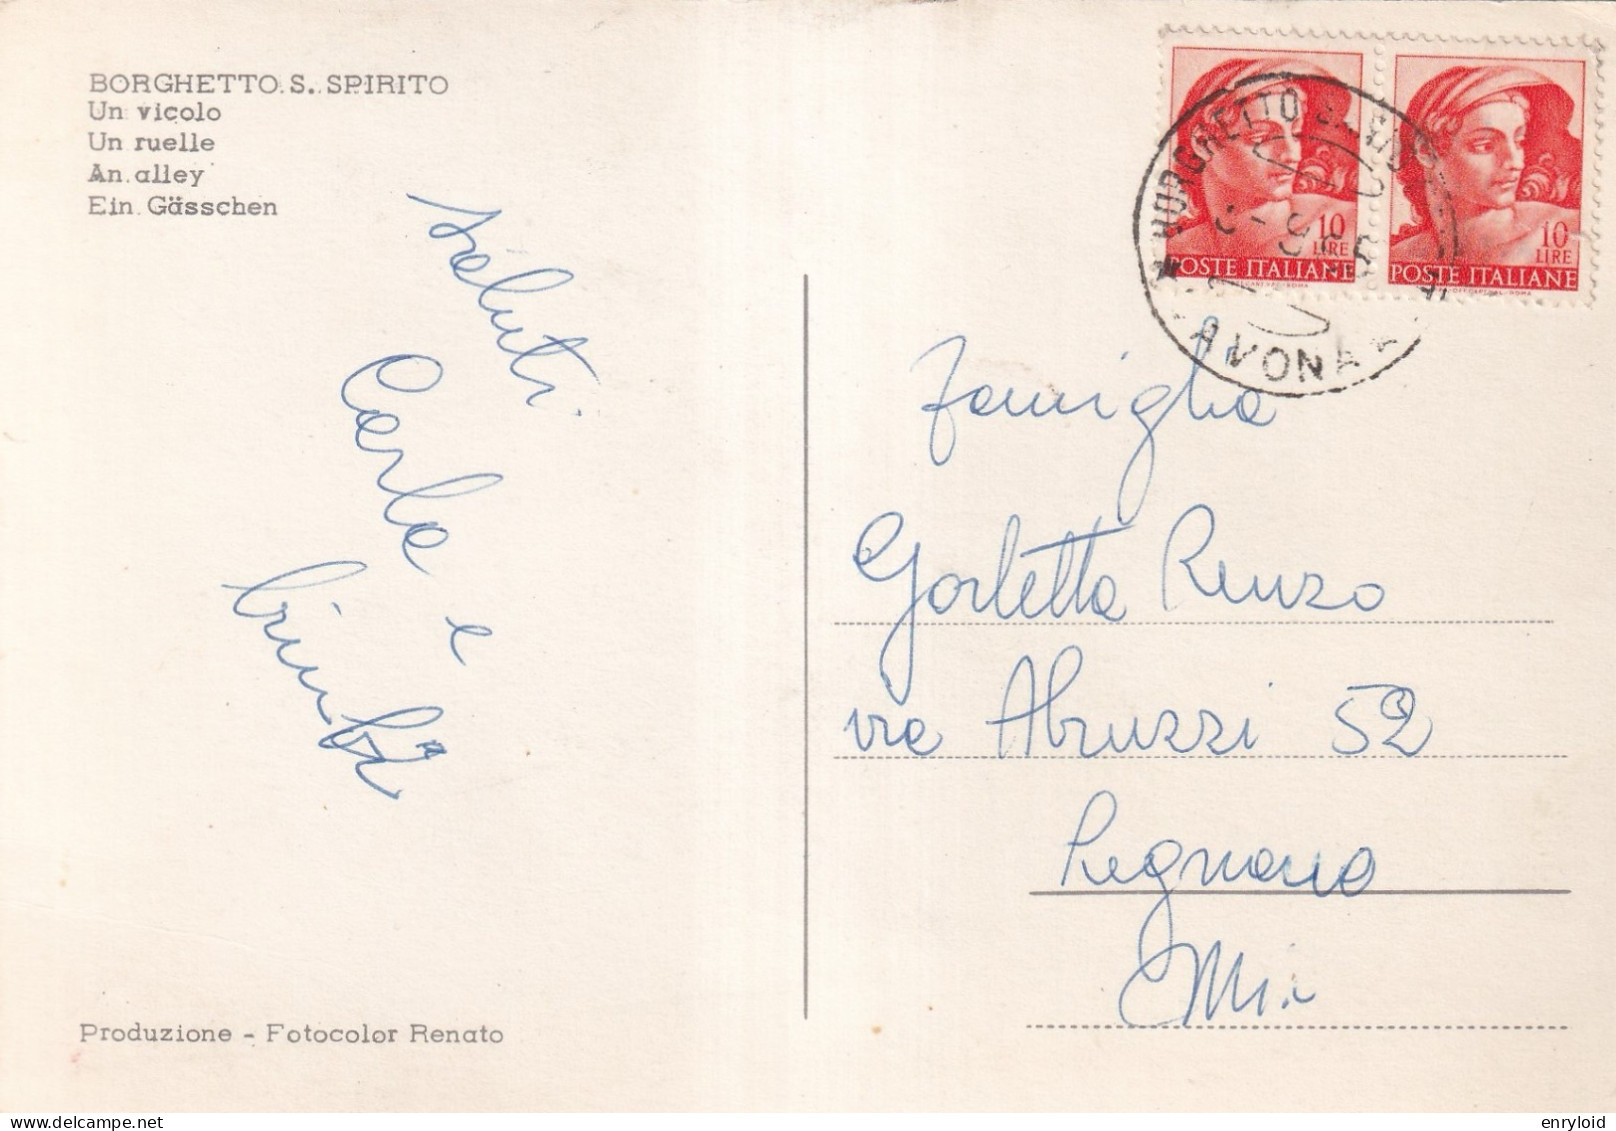 BORGHETTO S. SPIRITO
Un vicolo
Un ruelle
An alley
Ein Gässchen
saluti
Carla e
Produzione - Fotocolor Renato
10
LIRE
POSTE ITALIANE
10
LIRE
POSTE ITALIANE
BORGHETTO S.
AVONA
Famiglia
Gorletta Renzo
via Abruzzi 52
Legnano
Mi
enryloid